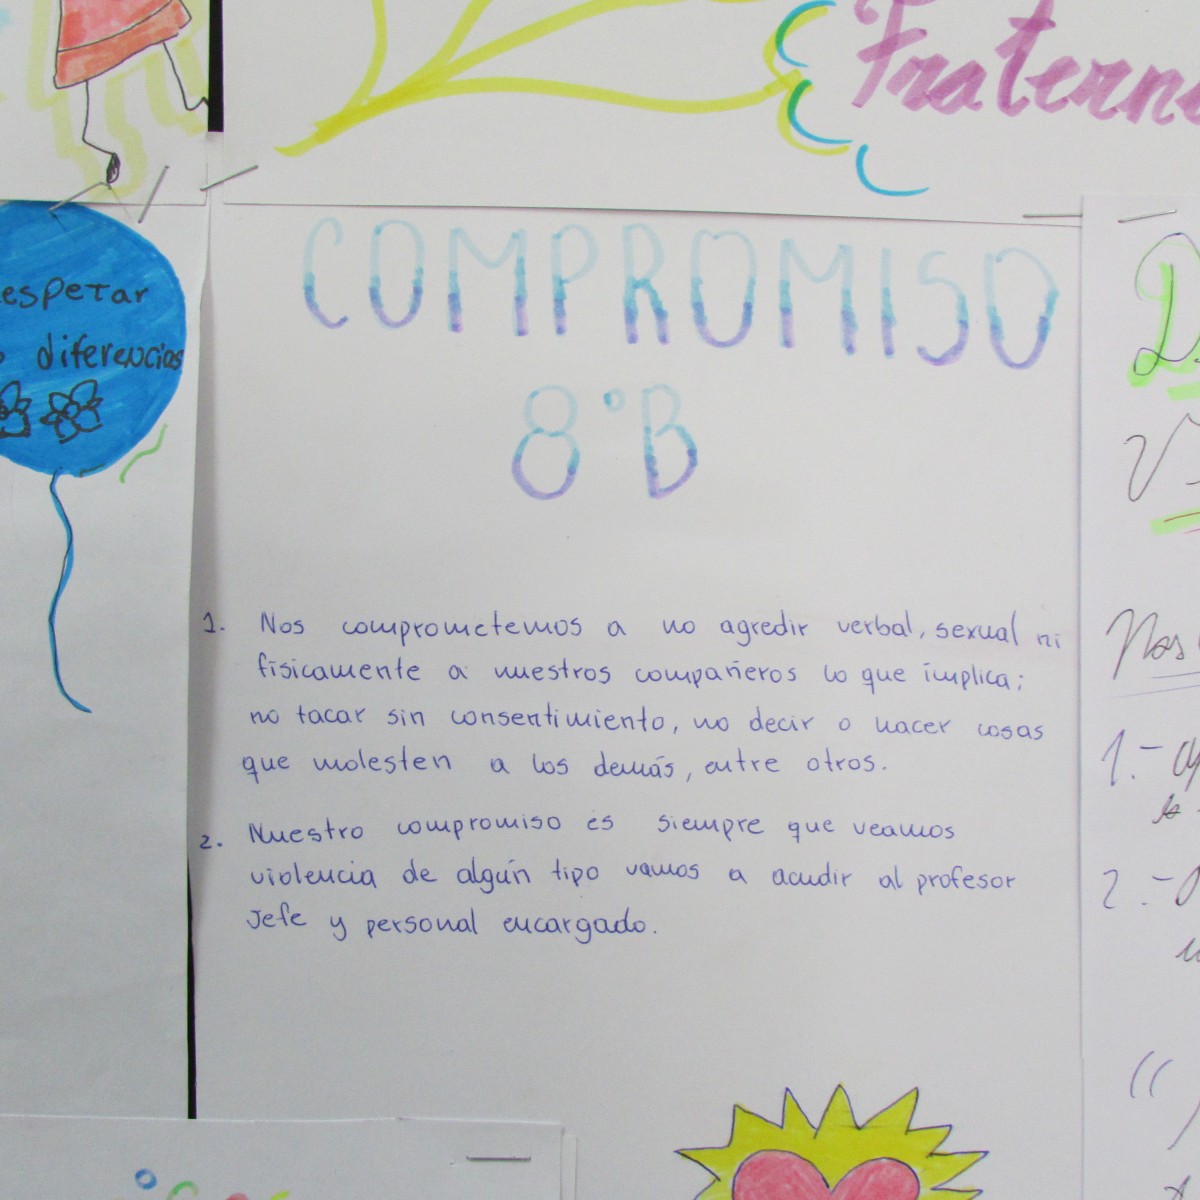 Fratern
espetar
diferencias
COMPROMISO
8°B
1. Nos comprometemos a no agredir verbal, sexual ni
físicamente a nuestros compañeros lo que implica;
no tacar sin consentimiento, no decir o hacer cosas
que molesten a los demás, entre otros.
2. Nuestro compromiso es siempre que veamos
violencia de algún tipo vamos a acudir al profesor
Jefe y personal encargado.
Nos
1.-
2.-